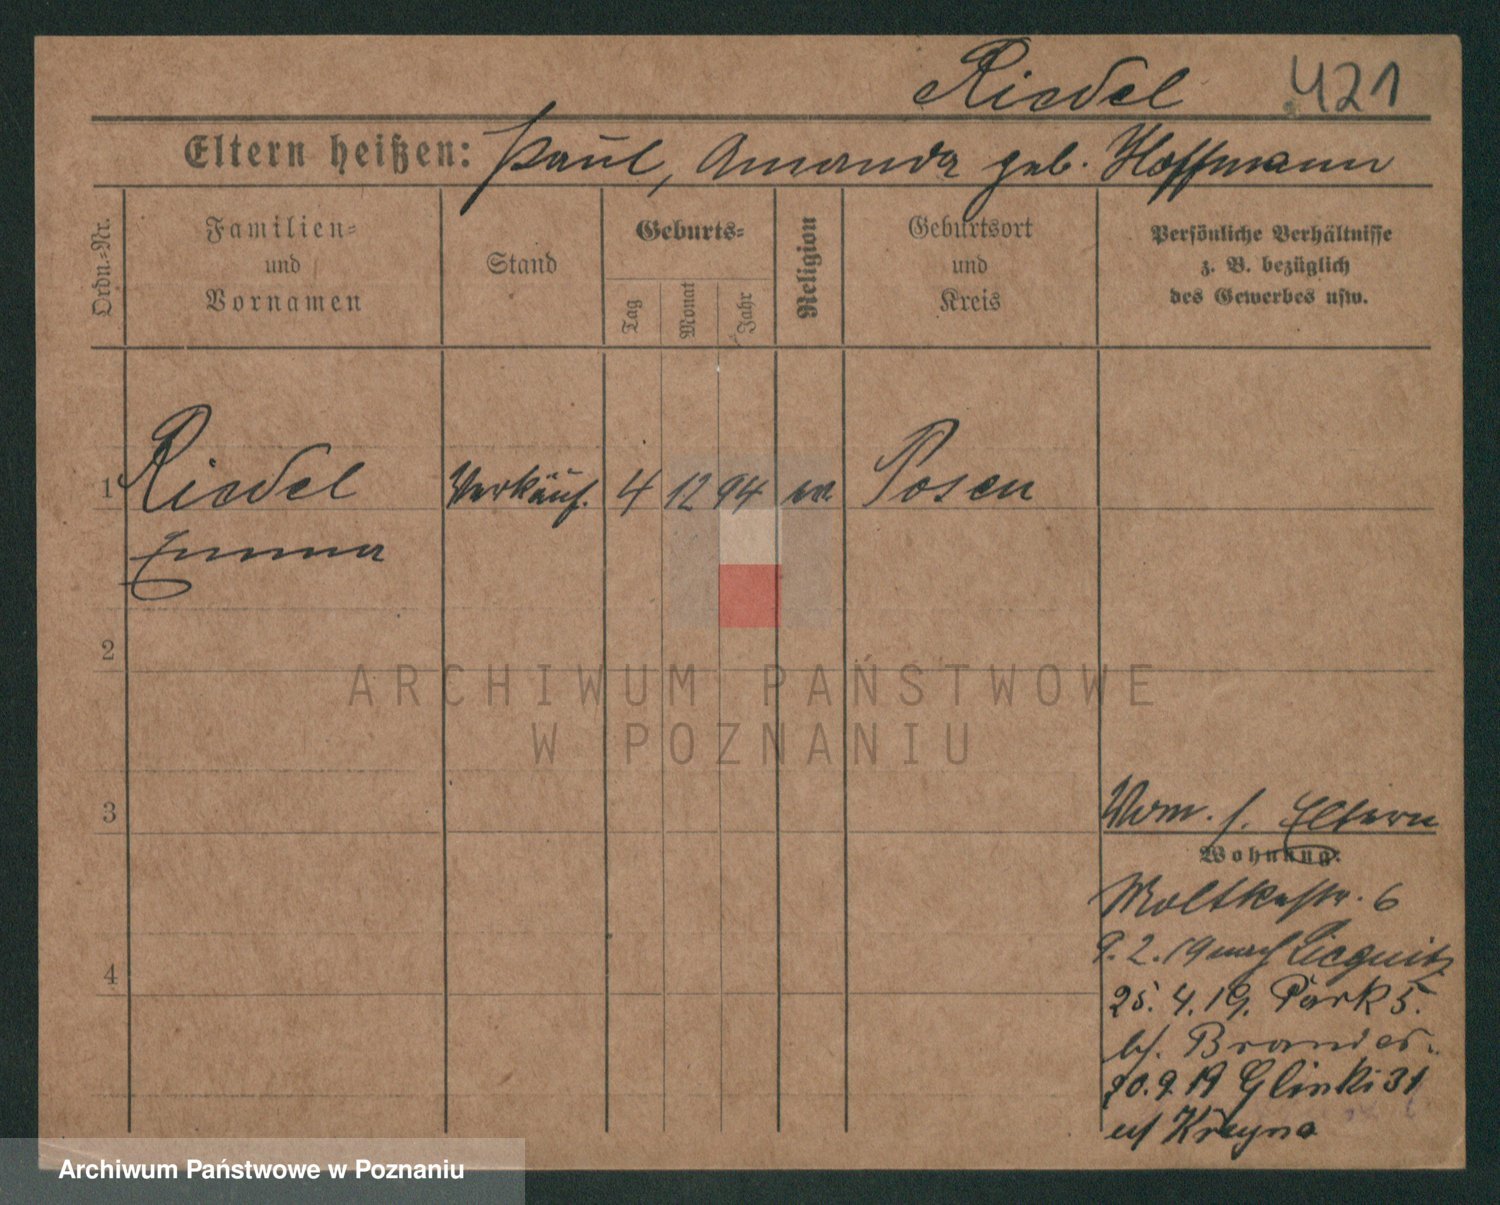 Riedel 421
Eltern heißen: Paul, Amanda geb. Hoffmann
Ordn.-Nr.
Familien-
und
Vornamen
Stand
Geburts-
Tag
Monat
Jahr
Religion
Geburtsort
und
Kreis
Persönliche Verhältnisse
z. B. bezüglich
des Gewerbes usw.
1 Riedel Verkäuf. 4 12 94 ev. Posen
Emma
2
ARCHIWUM PAŃSTWOWE
W POZNANIU
3
Vorm. s. Eltern
Wohnung:
Moltkestr. 6
9.2.19 nach Liegnitz
4
25.4.19. Park 5.
bei Brandes
20.9.19 Glinki 31
Kreyna
Archiwum Państwowe w Poznaniu